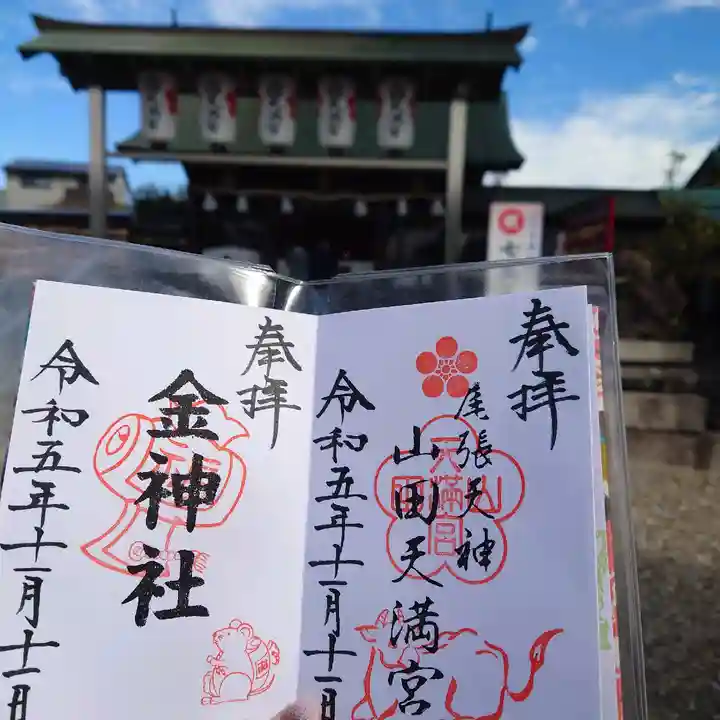 奉拝
尾張天神
山田天満宮
天満宮
山
令和五年十一月十一日
奉拝
金神社
令和五年十一月十一日